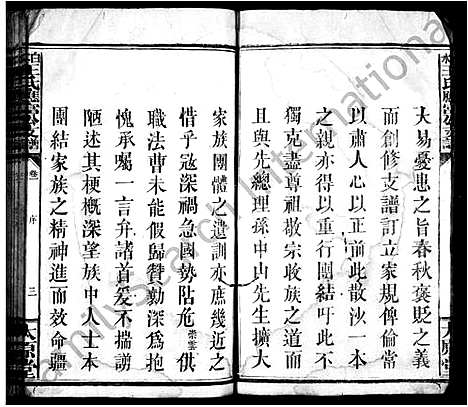 大易憂患之旨春秋褒貶之義
而創修支譜訂立家規俾倫常
以肅人心以正前此散沙一本
之親亦得以重行團結吁此不
獨克盡尊祖敬宗收族之大願
且與先總理孫中山先生擴大
家族團體之遺訓亦庶幾近之
惜乎寇深禍急國勢阽危崇雲供
職法曹未能假歸贊勷勝舉祗
愧承囑一言弁諸首爰不揣謭
陋述其梗概深望族中人士本
團結家族之精神進而效命疆
卷
序
三
太原堂
太原堂